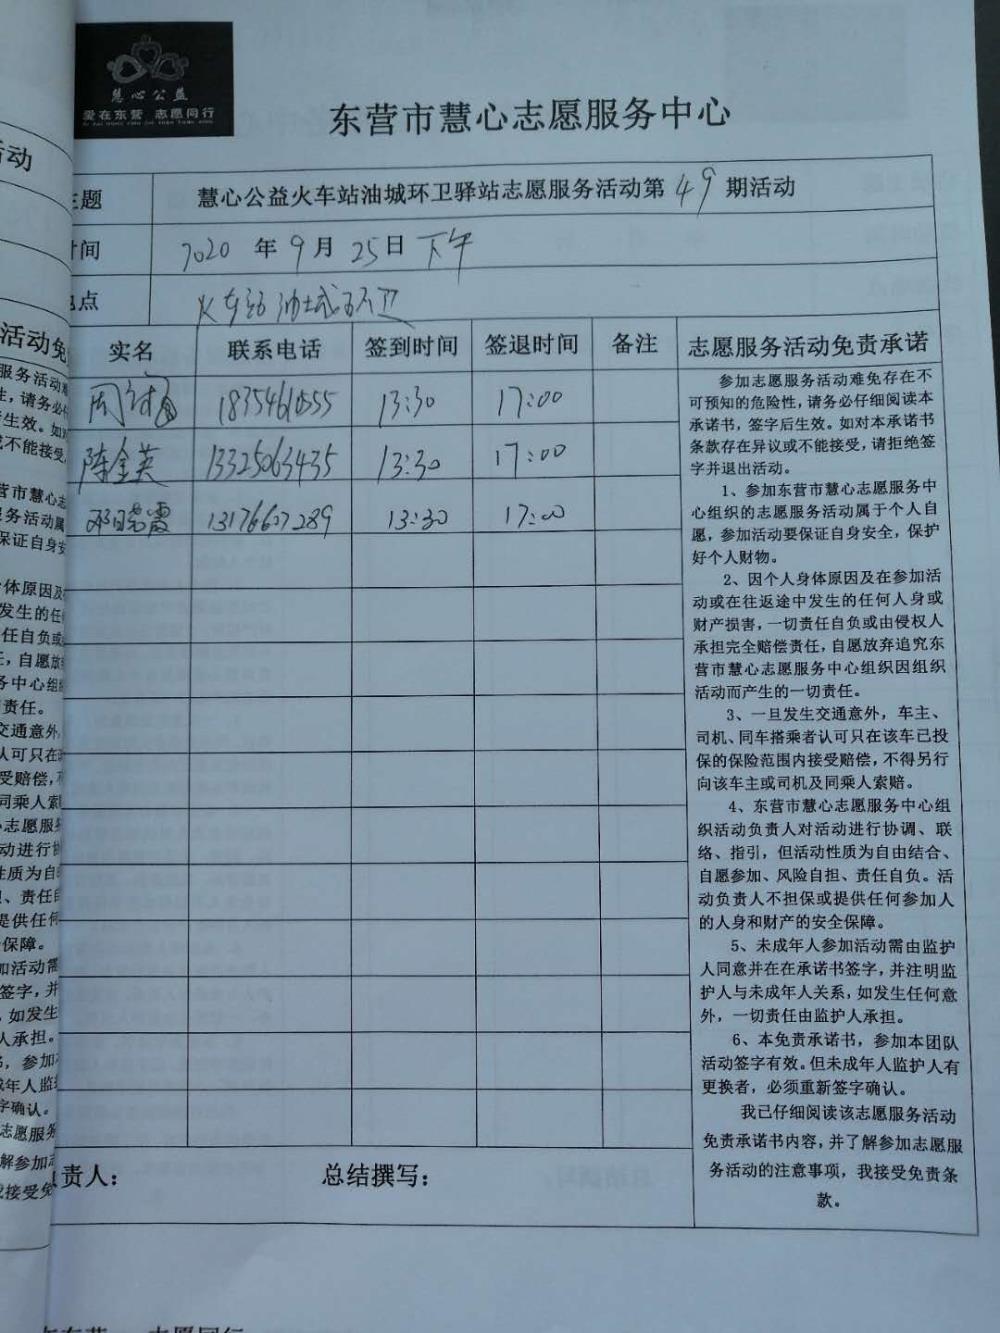 慧心公益
爱在东营 志愿同行
东营市慧心志愿服务中心
主题
慧心公益火车站油城环卫驿站志愿服务活动第49期活动
时间
2020年9月25日下午
地点
火车站油城环卫
实名 联系电话 签到时间 签退时间 备注 志愿服务活动免责承诺
周 18354610555 13:30 17:00
陈金英 13325063435 13:30 17:00
邓晓霞 13176607289 13:30 17:00
参加志愿服务活动难免存在不
可预知的危险性，请务必仔细阅读本
承诺书，签字后生效。如对本承诺书
条款存在异议或不能接受，请拒绝签
字并退出活动。
1、参加东营市慧心志愿服务中
心组织的志愿服务活动属于个人自
愿，参加活动要保证自身安全，保护
好个人财物。
2、因个人身体原因及在参加活
动或在往返途中发生的任何人身或
财产损害，一切责任自负或由侵权人
承担完全赔偿责任，自愿放弃追究东
营市慧心志愿服务中心组织因组织
活动而产生的一切责任。
3、一旦发生交通意外，车主、
司机、同车搭乘者认可只在该车已投
保的保险范围内接受赔偿，不得另行
向该车主或司机及同乘人索赔。
4、东营市慧心志愿服务中心组
织活动负责人对活动进行协调、联
络、指引，但活动性质为自由结合、
自愿参加、风险自担、责任自负。活
动负责人不担保或提供任何参加人
的人身和财产的安全保障。
5、未成年人参加活动需由监护
人同意并在在承诺书签字，并注明监
护人与未成年人关系，如发生任何意
外，一切责任由监护人承担。
6、本免责承诺书，参加本团队
活动签字有效。但未成年人监护人有
更换者，必须重新签字确认。
我已仔细阅读该志愿服务活动
免责承诺书内容，并了解参加志愿服
务活动的注意事项，我接受免责条
款。
负责人： 总结撰写：